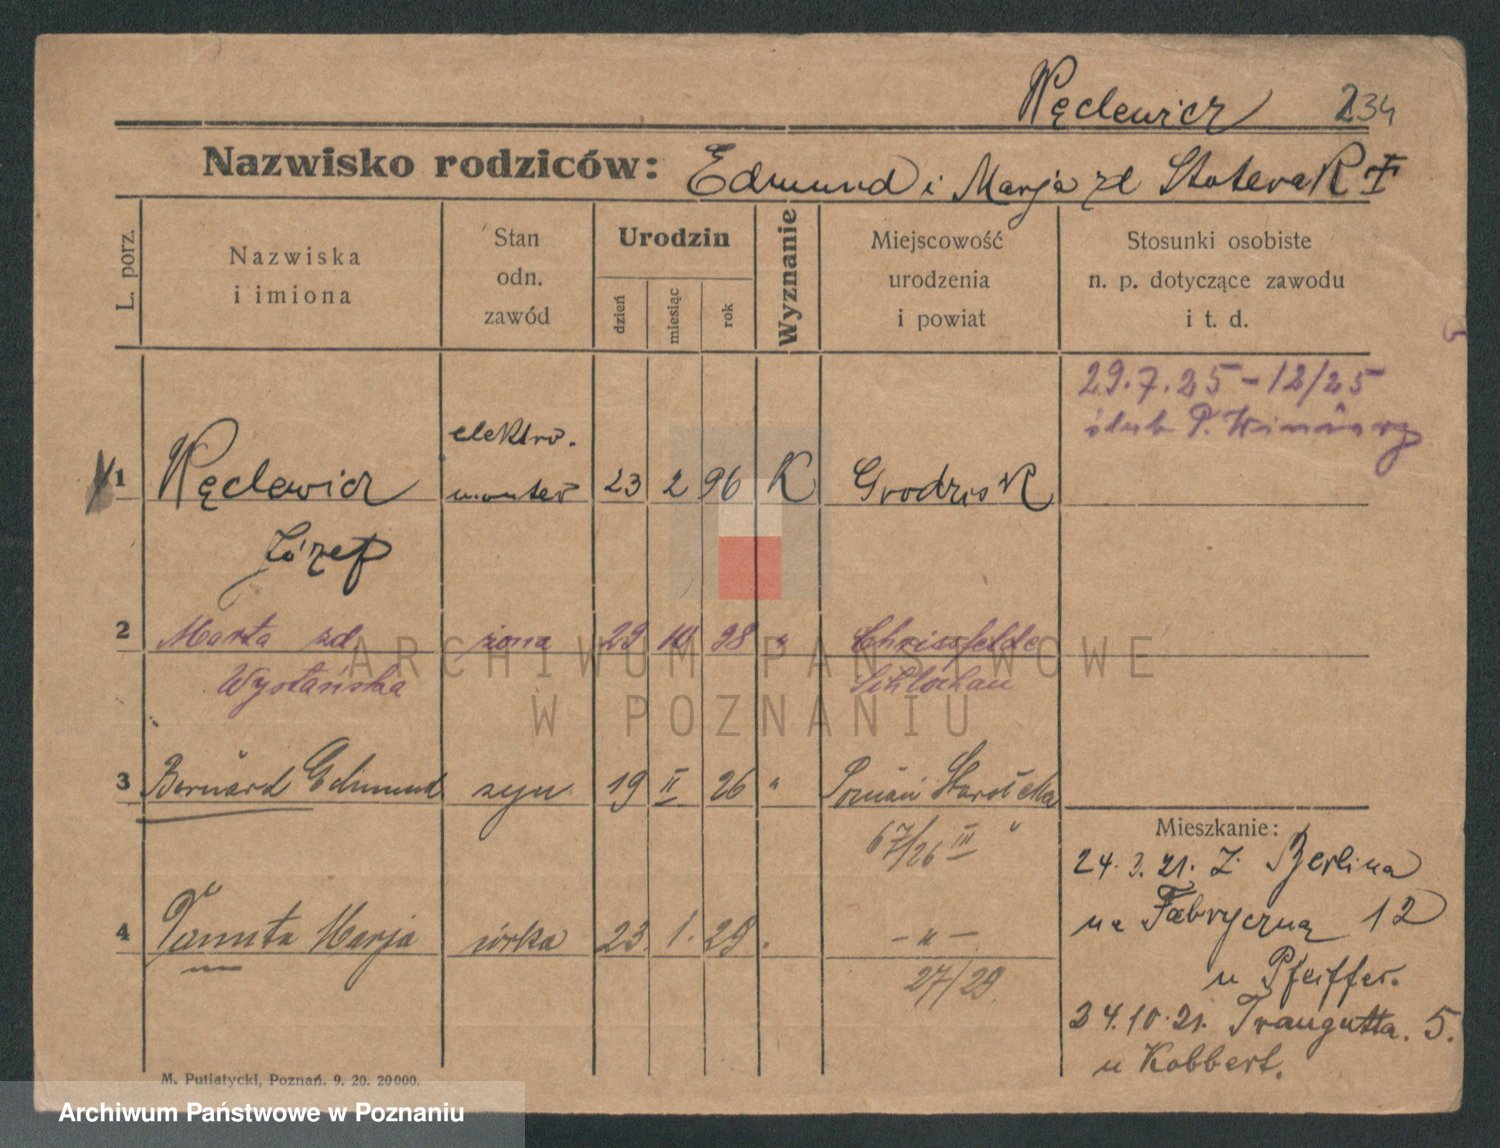 Węclewicz 234
Nazwisko rodziców: Edmund i Marja zd
L. porz.
Nazwiska
i imiona
Stan
odn.
zawód
Urodzin
dzień
miesiąc
rok
Wyznanie
Miejscowość
urodzenia
i powiat
Stosunki osobiste
n. p. dotyczące zawodu
i t. d.
29.7.25 – 12/25
ślub P. Winiary
elektro-
1 Węclewicz monter 23 2 96 K Grodzisk
Józef
2 Marta zd żona 29 10 98 " Chrissfelde
Wystańska Schlochau
3 Bernard Edmund syn 19 II 26 " Poznań Starołęka
67/26 III
4 Danuta Marja córka 23. 1. 29 – " –
27/29.
Mieszkanie:
24. 3. 21. z Berlina
na Fabryczną 12
u Pfeiffer.
24.10.21. Traugutta. 5.
u Kobbert.
M. Putiatycki, Poznań. 9. 20. 20000.
ARCHIWUM PAŃSTWOWE
W POZNANIU
Archiwum Państwowe w Poznaniu